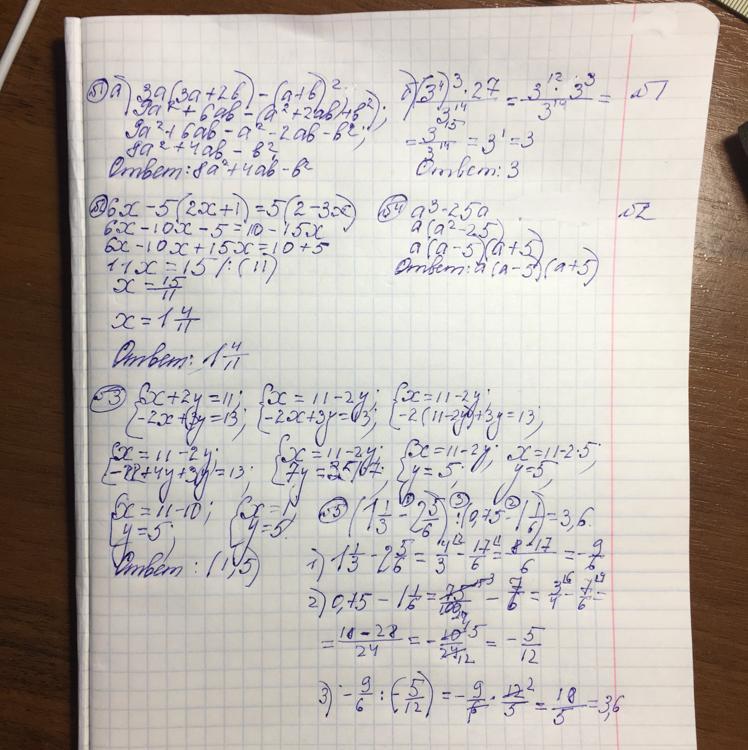 №1 а) 3a(3a+2b) - (a+b)²
9a² + 6ab - (a² + 2ab + b²);
9a² + 6ab - a² - 2ab - b²;
8a² + 4ab - b²
Ответ: 8a² + 4ab - b²
б) (3⁴)³ · 27 / 3¹⁴ = 3¹² · 3³ / 3¹⁴ =
= 3¹⁵ / 3¹⁴ = 3¹ = 3
Ответ: 3
№1
№2 6x - 5(2x+1) = 5(2-3x)
6x - 10x - 5 = 10 - 15x
6x - 10x + 15x = 10 + 5
11x = 15 /:(11)
x = 15/11
x = 1 4/11
Ответ: 1 4/11
№4 a³ - 25a
a(a² - 25)
a(a-5)(a+5)
Ответ: a(a-5)(a+5)
№2
№3 {x+2y=11; -2x+3y=13; {x=11-2y; -2x+3y=13; {x=11-2y; -2(11-2y)+3y=13;
{x=11-2y; -22+4y+3y=13; {x=11-2y; 7y=35/:7; {x=11-2y; y=5; x=11-2·5; y=5;
{x=11-10; y=5; {x=1; y=5.
Ответ: (1;5)
№5 (1 1/3 - 2 5/6) : (0,75 - 1 1/6) = 3,6.
1) 1 1/3 - 2 5/6 = 4/3 - 17/6 = 8-17/6 = -9/6
2) 0,75 - 1 1/6 = 75/100 - 7/6 = 3/4 - 7/6 =
= 18-28/24 = -10/24 = -5/12
3) -9/6 : (-5/12) = -9/6 · 12/5 = 18/5 = 3,6